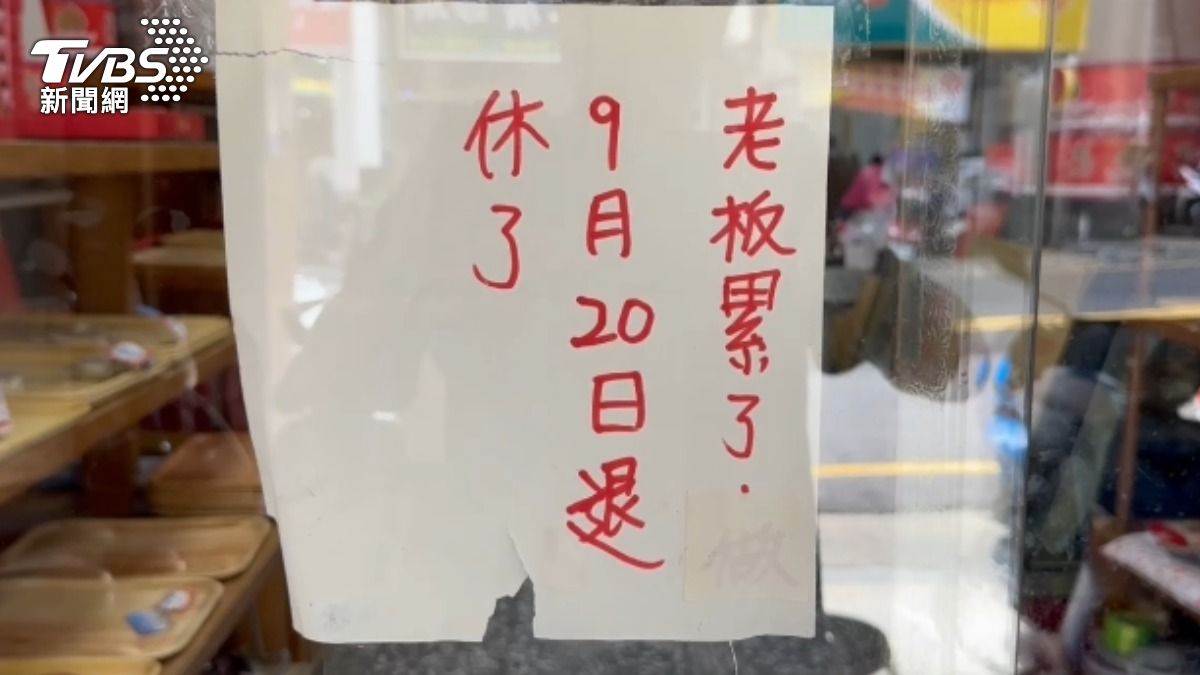 TVBS
新聞網
老板累了.
9月20日退
休了